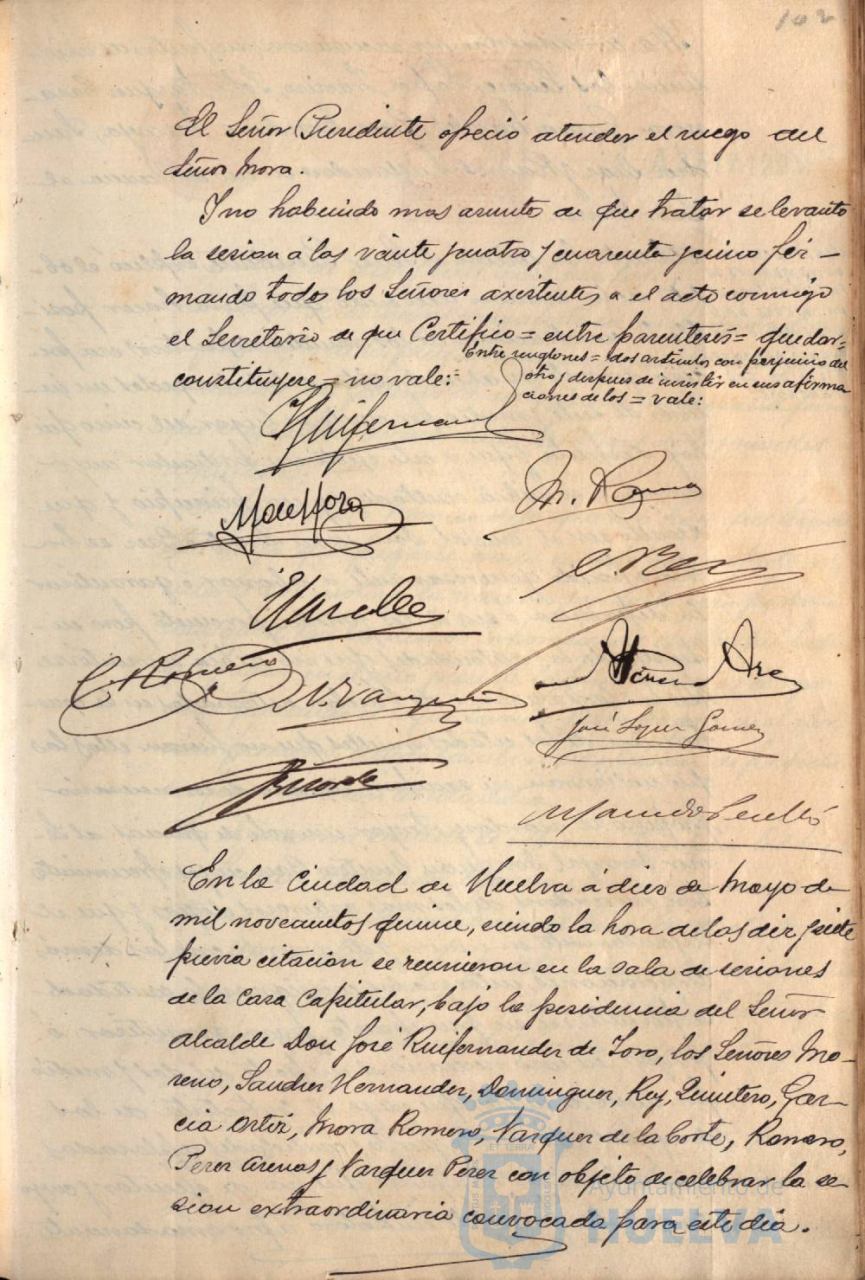 102
El Señor Presidente ofreció atender el ruego del
Señor Mora.
Y no habiendo mas asunto de que tratar se levanto
la sesion á las veinte y cuatro y cuarenta y cinco fir-
mando todos los Señores asistentes a el acto conmigo
el Secretario de que Certifico = entre parenteses = quedar=
constituyese = no vale:
Entre renglones = dos articulos con perjuicio del
otro y despues de insistir en sus afirma
ciones de los = vale:
M de Mora
C. Romero
José Lopez Gomez
En la Ciudad de Huelva á diez de Mayo de
mil novecientos quince, siendo la hora de las diez y siete
previa citacion se reunieron en la Sala de sesiones
de la Casa Capitular, bajo la presidencia del Señor
Alcalde Don José Ruifernandez de Toro, los Señores Mo-
reno, Sanchez Hernandez, Dominguez, Rey, Quintero, Gar-
cia Ortiz, Mora Romero, Vazquez de la Corte, Romero,
Perez Arenas y Vazquez Perez con objeto de celebrar la se-
sion extraordinaria convocada para este dia.
Ayuntamiento de
HUELVA